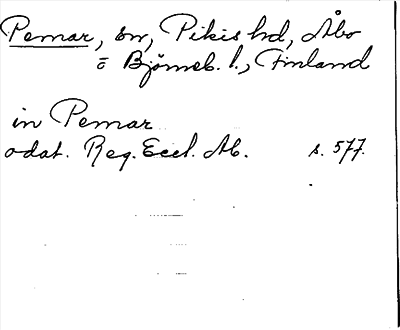 Pemar, sn, Pikis hd, Åbo
o Björneb. l., Finland
in Pemar
odat. Reg. Eccl. Ab. s. 577.